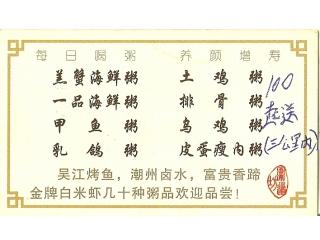 每日喝粥 养颜增寿
羔蟹海鲜粥 土鸡粥
一品海鲜粥 排骨粥
甲鱼粥 乌鸡粥
乳鸽粥 皮蛋瘦内粥
100
起送
(三公里内)
吴江烤鱼，潮州卤水，富贵香蹄
金牌白米虾几十种粥品欢迎品尝！